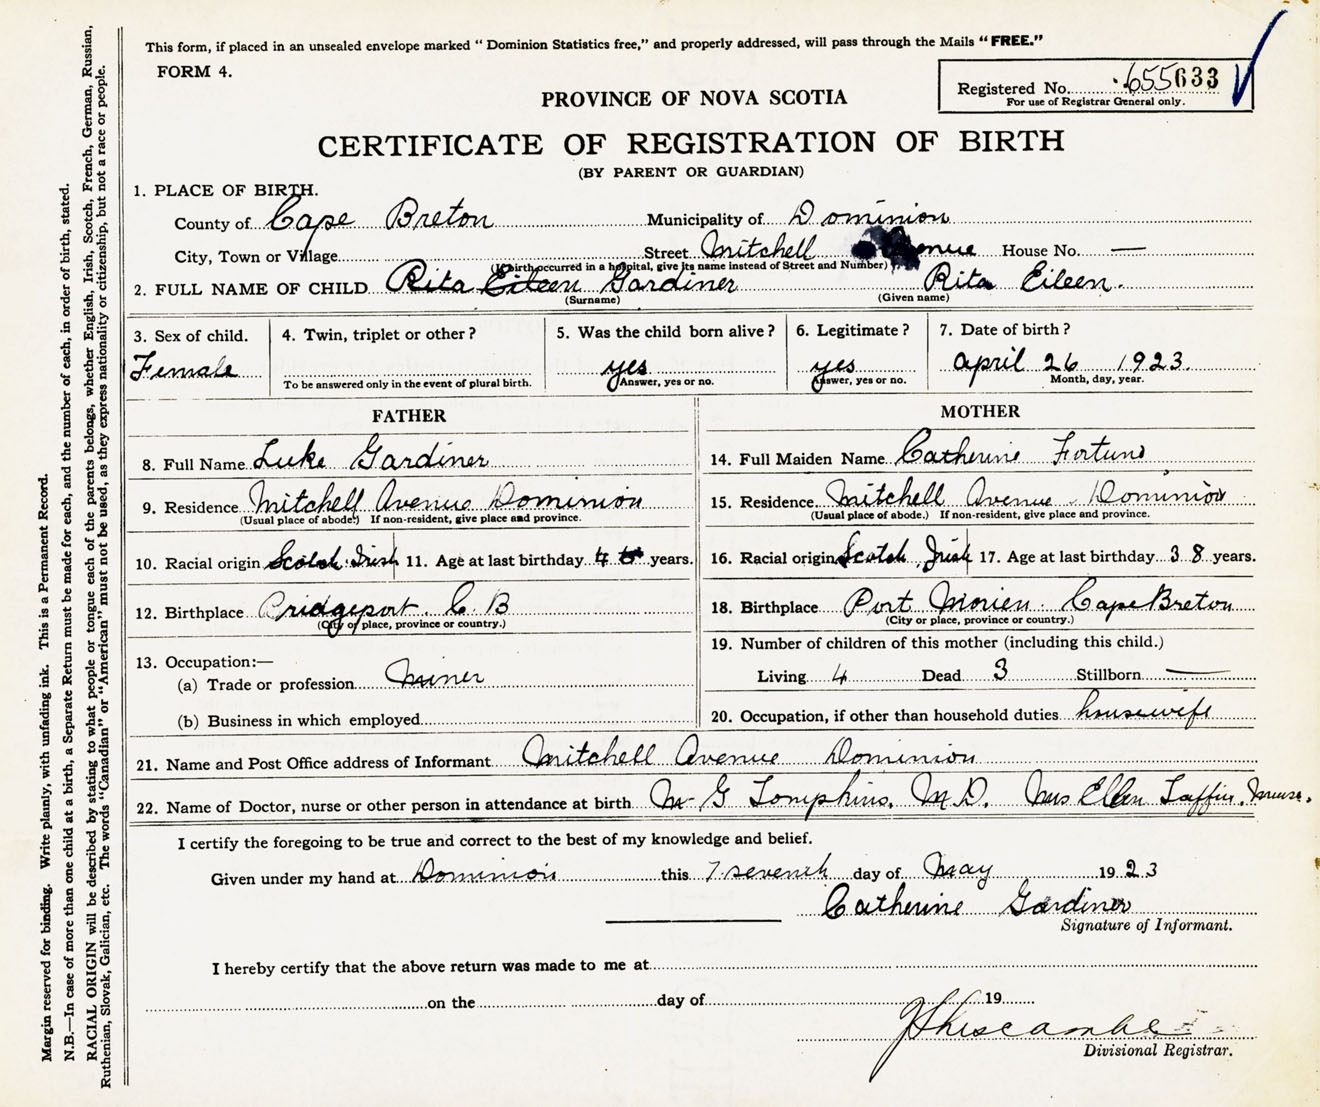 This form, if placed in an unsealed envelope marked "Dominion Statistics free," and properly addressed, will pass through the Mails "FREE."
FORM 4.
Registered No. 655633
For use of Registrar General only.
PROVINCE OF NOVA SCOTIA
CERTIFICATE OF REGISTRATION OF BIRTH
(BY PARENT OR GUARDIAN)
1. PLACE OF BIRTH.
County of Cape Breton Municipality of Dominion
City, Town or Village Street Mitchell Avenue House No. —
(If birth occurred in a hospital, give its name instead of Street and Number)
2. FULL NAME OF CHILD Rita Eileen Gardiner Rita Eileen.
(Surname) (Given name)
3. Sex of child. 4. Twin, triplet or other? 5. Was the child born alive? 6. Legitimate? 7. Date of birth?
Female yes yes april 26 1923.
To be answered only in the event of plural birth. Answer, yes or no. Answer, yes or no. Month, day, year.
FATHER MOTHER
8. Full Name Luke Gardiner 14. Full Maiden Name Catherine Fortune
9. Residence Mitchell Avenue Dominion 15. Residence Mitchell Avenue Dominion
(Usual place of abode.) If non-resident, give place and province. (Usual place of abode.) If non-resident, give place and province.
10. Racial origin Scotch Irish 11. Age at last birthday years. 16. Racial origin Scotch Irish 17. Age at last birthday 38 years.
12. Birthplace Bridgeport C B 18. Birthplace Port Morien Cape Breton
(City or place, province or country.) (City or place, province or country.)
13. Occupation:— 19. Number of children of this mother (including this child.)
(a) Trade or profession Miner Living 4 Dead 3 Stillborn —
(b) Business in which employed 20. Occupation, if other than household duties housewife
21. Name and Post Office address of Informant Mitchell Avenue Dominion
22. Name of Doctor, nurse or other person in attendance at birth G Tompkins, M.D. Mrs Ellen Laffin. Nurse.
I certify the foregoing to be true and correct to the best of my knowledge and belief.
Given under my hand at Dominion this 7 seventh day of May 1923
Catherine Gardiner
Signature of Informant.
I hereby certify that the above return was made to me at
on the day of 19
Divisional Registrar.
Margin reserved for binding. Write plainly, with unfading ink. This is a Permanent Record.
N.B.—In case of more than one child at a birth, a Separate Return must be made for each, and the number of each, in order of birth, stated.
RACIAL ORIGIN will be described by stating to what people or tongue each of the parents belongs, whether English, Irish, Scotch, French, German, Russian,
Ruthenian, Slovak, Galician, etc. The words "Canadian" or "American" must not be used, as they express nationality or citizenship, but not a race or people.